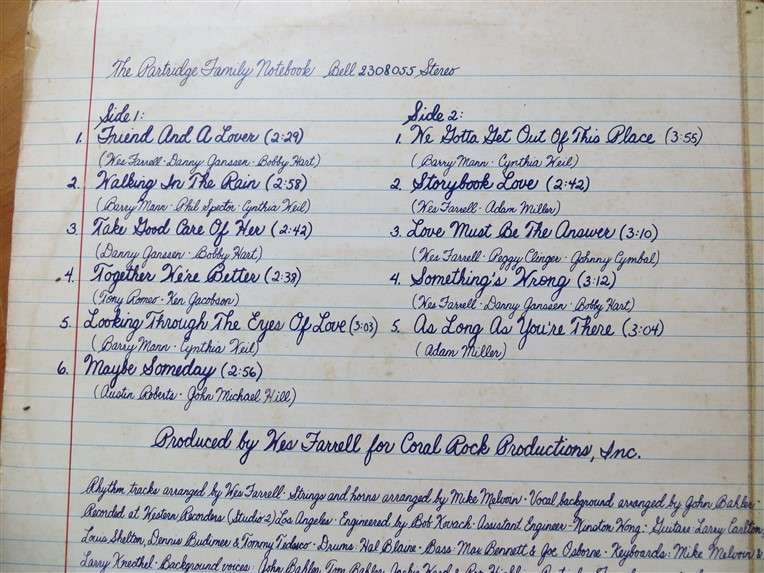 The Partridge Family Notebook Bell 2308055 Stereo
Side 1:
1. Friend And A Lover (2:29)
(Wes Farrell · Danny Janssen · Bobby Hart)
2. Walking In The Rain (2:58)
(Barry Mann · Phil Spector · Cynthia Weil)
3. Take Good Care Of Her (2:42)
(Danny Janssen · Bobby Hart)
4. Together We're Better (2:38)
(Tony Romeo · Ken Jacobson)
5. Looking Through The Eyes Of Love (3:03)
(Barry Mann · Cynthia Weil)
6. Maybe Someday (2:56)
(Austin Roberts · John Michael Hill)
Side 2:
1. We Gotta Get Out Of This Place (3:55)
(Barry Mann · Cynthia Weil)
2. Storybook Love (2:42)
(Wes Farrell · Adam Miller)
3. Love Must Be The Answer (3:10)
(Wes Farrell · Peggy Clinger · Johnny Cymbal)
4. Something's Wrong (3:12)
(Wes Farrell · Danny Janssen · Bobby Hart)
5. As Long As You're There (3:04)
(Adam Miller)
Produced by Wes Farrell for Coral Rock Productions, Inc.
Rhythm tracks arranged by Wes Farrell · Strings and horns arranged by Mike Melvoin · Vocal background arranged by John Bahler ·
Recorded at Western Recorders (Studio 2) Los Angeles · Engineered by Bob Kovach · Assistant Engineer · Winston Wong · Guitars: Larry Carlton,
Louis Shelton, Dennis Budimer & Tommy Tedesco · Drums: Hal Blaine · Bass: Max Bennett & Joe Osborne · Keyboards: Mike Melvoin &
Larry Knechtel · Background voices: John Bahler, Tom Bahler,